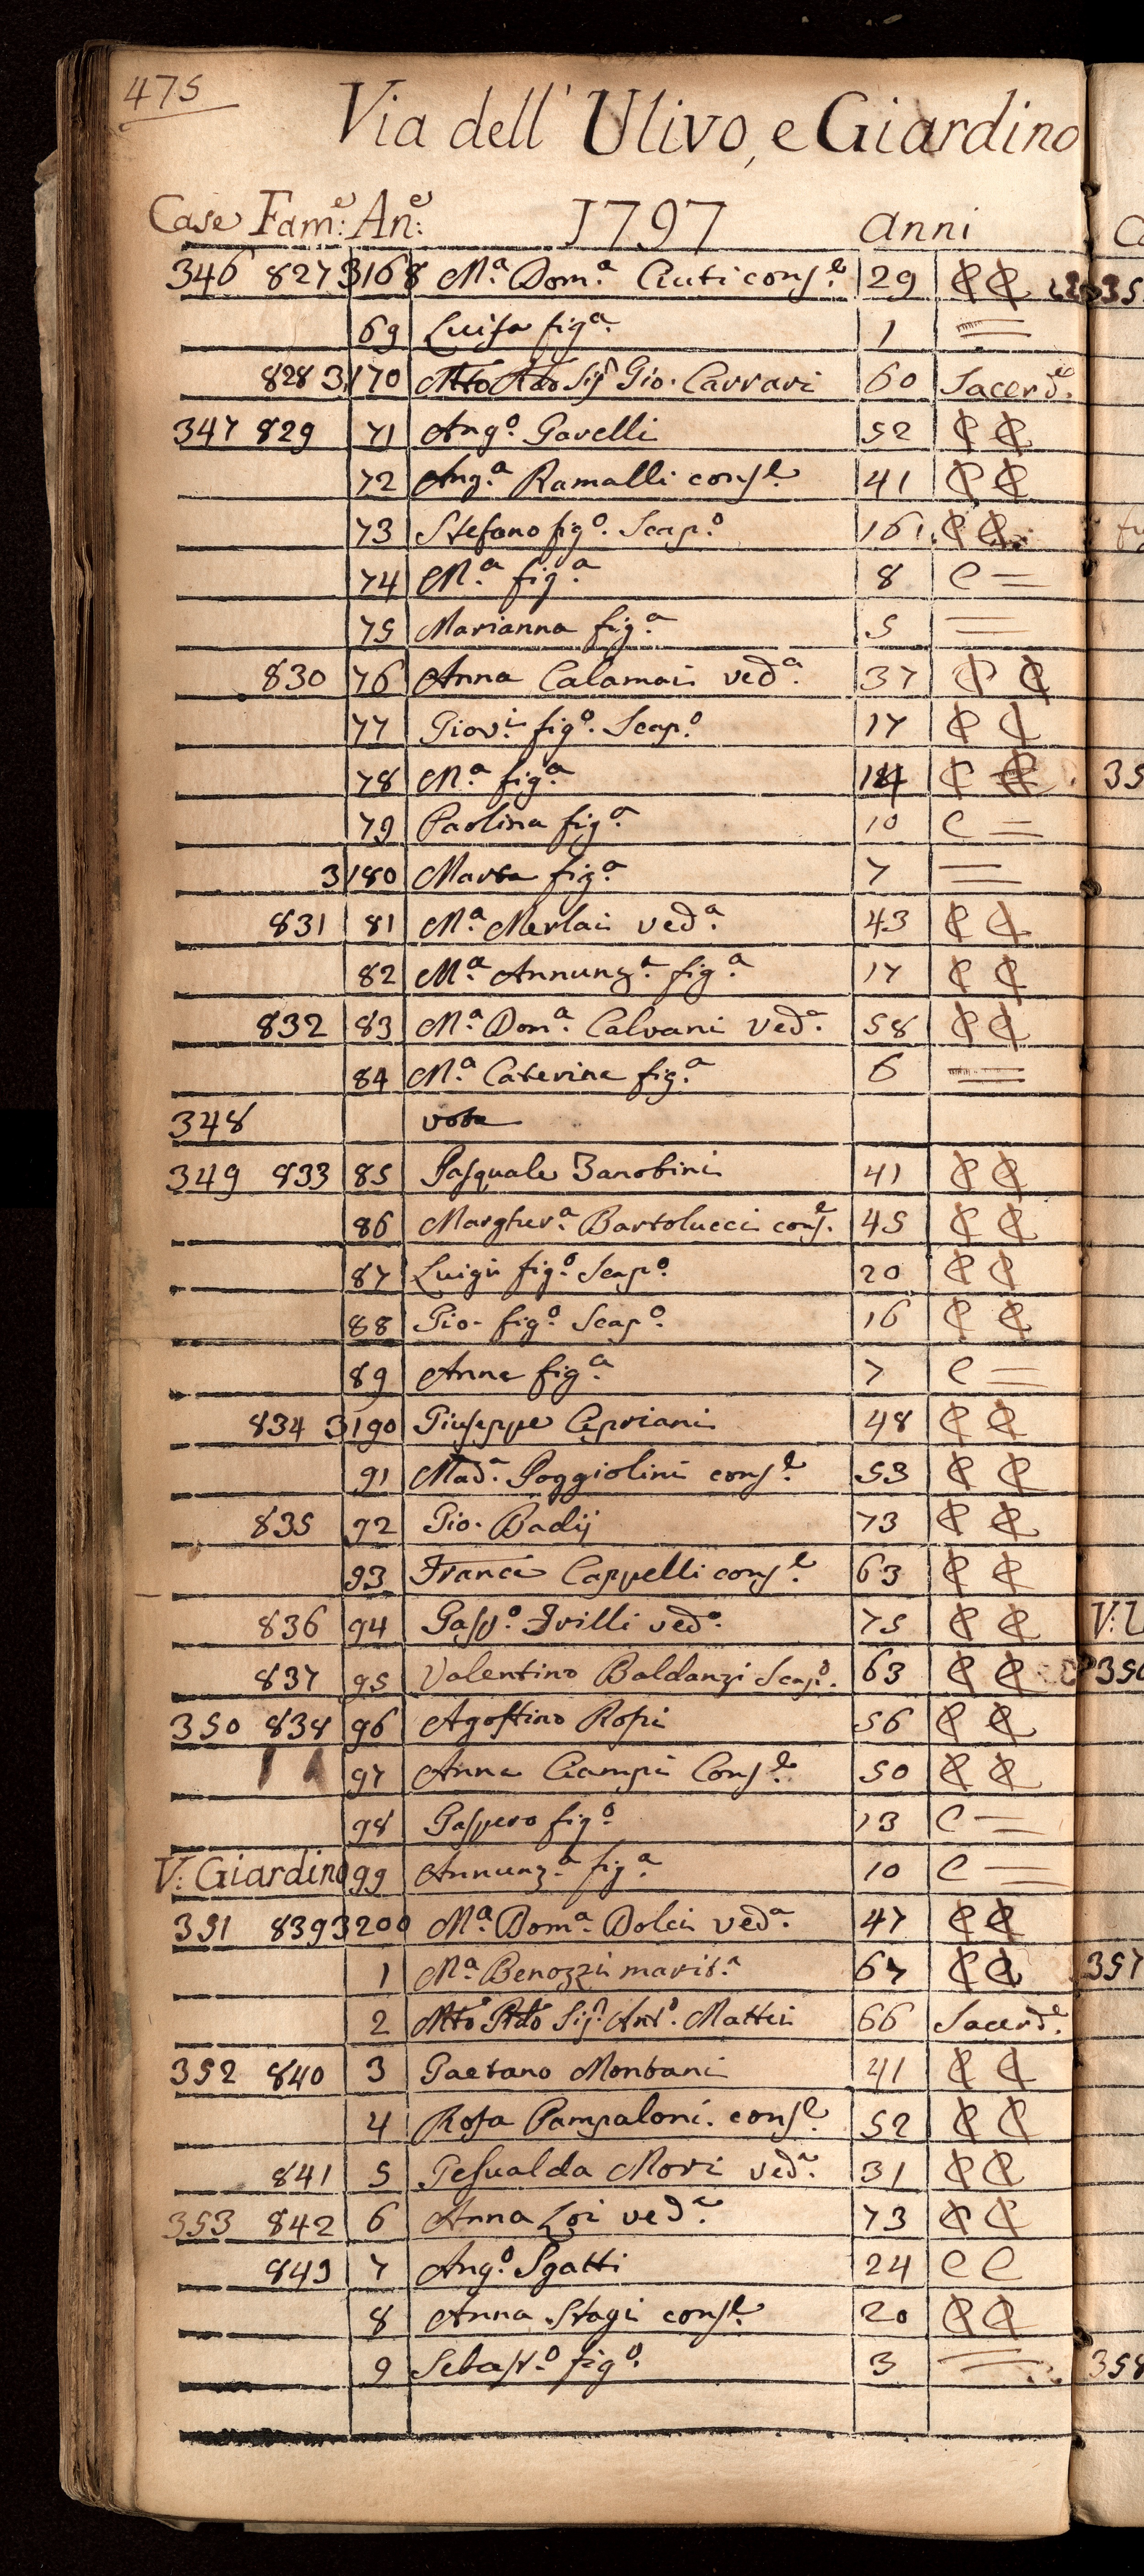 475
Via dell' Ulivo, e Giardino
Case Fam.e: An.e: 1797 anni
346 827 3168 M.a Dom.a Ciuti cons.e 29 C C
69 Luisa fig.a 1 =
828 3170 Mto Rdo Sig.r Gio. Carrari 60 Sacerd.e
347 829 71 Ang.o Gavelli 52 C C
72 Ang.a Ramalli cons.e 41 C C
73 Stefano fig.o Scap.o 16 C C
74 M.a fig.a 8 C =
75 Marianna fig.a 5 =
830 76 Anna Calamai ved.a 37 C C
77 Giov.i fig.o Scap.o 17 C C
78 M.a fig.a 14 C C
79 Paolina fig.a 10 C =
3180 Marta fig.a 7 =
831 81 M.a Merlai ved.a 43 C C
82 M.a Annunz.a fig.a 17 C C
832 83 M.a Dom.a Calvani ved.a 58 C C
84 M.a Caterina fig.a 6 =
348 vota
349 833 85 Pasquale Zanobini 41 C C
86 Margher.a Bartolucci cons.e 45 C C
87 Luigi fig.o Scap.o 20 C C
88 Gio. fig.o Scap.o 16 C C
89 Anna fig.a 7 C =
834 3190 Giuseppe Cipriani 48 C C
91 Mad.a Poggiolini cons.e 53 C C
835 92 Gio. Badij 73 C C
93 Franca Cappelli cons.e 63 C C
836 94 Gasp.o ved.o 75 C C
837 95 Valentino Baldanzi Scap.o 63 C C
350 838 96 Agostino Rosi 56 C C
97 Anna Ciampi Cons.e 50 C C
98 Gaspero fig.o 13 C =
V. Giardino 99 Annunz.a fig.a 10 C =
351 839 3200 M.a Dom.a Dolci ved.a 47 C C
1 M.a Benozzi marit.a 67 C C
2 Mto Rdo Sig.r Ant.o Mattei 66 Sacerd.e
352 840 3 Gaetano Montani 41 C C
4 Rosa Pampaloni cons.e 52 C C
841 5 Gesualda Mori ved.a 31 C C
353 842 6 Anna Zoi ved.a 73 C C
843 7 Ang.o Sgatti 24 C C
8 Anna Stagi cons.e 20 C C
9 Sebast.o fig.o 3 =